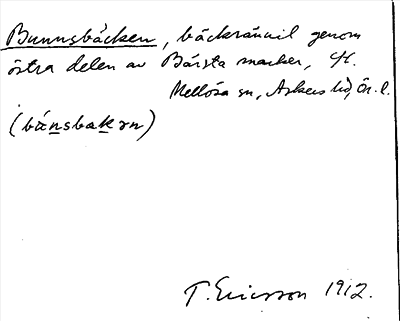 Bunnsbäcken, bäckränil genom
östra delen av Bärsta marker, St.
Mellösa sn, Askers hd, Ör. l.
(búnsbakɜn)
T. Ericsson 1912.